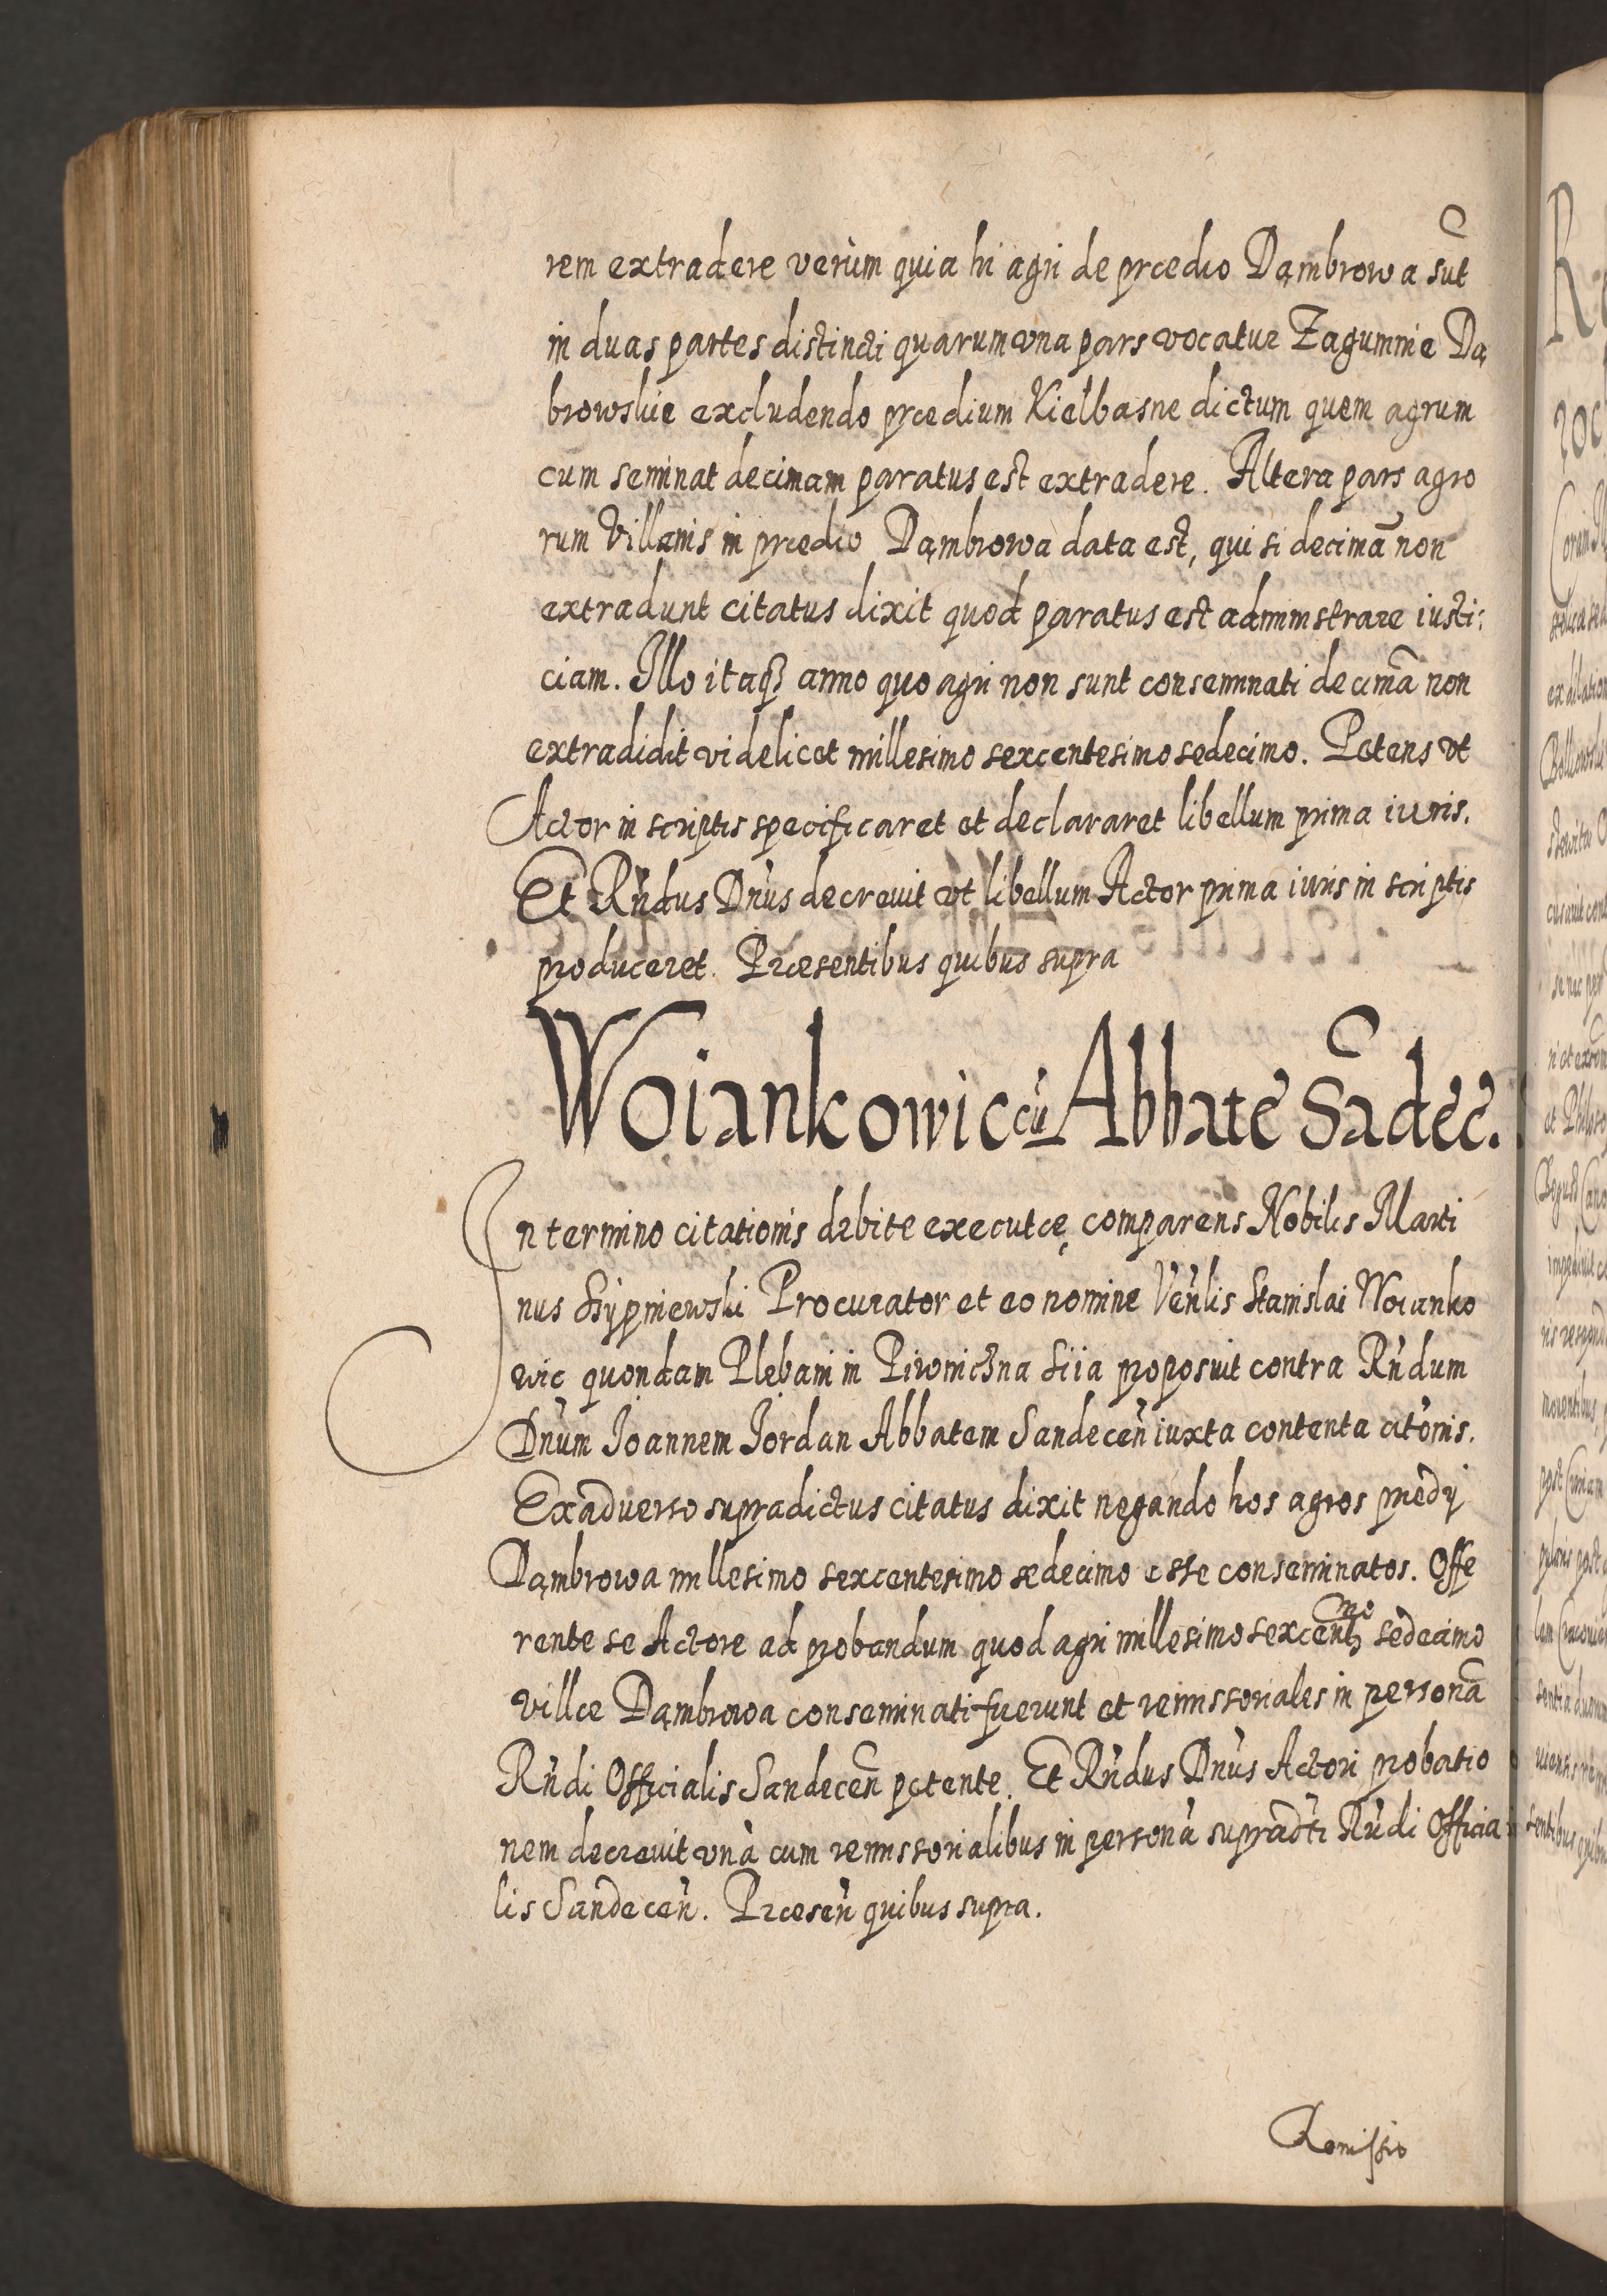 rem extradere verùm quia hi agri de prædio Dąmbrowa sūt
in duas partes distincti quarum vna pars vocatur Zagumnie Dą
browskie excludendo prædium Kiełbasne dictum quem agrum
cum seminat decimam paratus est extradere. Altera pars agro
rum Villanis in prædio Dąmbrowa data est, qui si decimā non
extradunt citatus dixit quod paratus est administrare iusti:
ciam. Illo itaqꝫ anno quo agri non sunt conseminati decimā non
extradidit videlicet millesimo sexcentesimo sedecimo. Petens vt
Actor in scriptis specificaret et declararet libellum prima iuris.
Et Rn̄dus Dn̄us decreuit vt libellum Actor prima iuris in scriptis
produceret. Præsentibus quibus supra
Woiankowic cū Abbate Sādec̄.
In termino citationis debite executæ comparens Nobilis Marti
nus Procurator et eo nomine Ven̄lis Stanislai Woianko
wic quondam Plebani in Piwniczna siia proposuit contra Rn̄dum
Dn̄um Ioannem Iordan Abbatem Sandecen̄ iuxta contenta citōnis.
Exaduerso supradictus citatus dixit negando hos agros prædij
Dąmbrowa millesimo sexcentesimo sedecimo esse conseminatos. Offe
rente se Actore ad probandum quod agri millesimo sexcentᵐᵒ sedecimo
villæ Dąmbrowa conseminati fuerunt et remissoriales in personā
Rn̄di Officialis Sandecen̄ petente. Et Rn̄dus Dn̄us Actori probatio
nem decreuit vnà cum remissorialibus in personà supradc̄ti Rn̄di Officia
lis Sandecen̄. Præsen̄ quibus supra.
Remissio